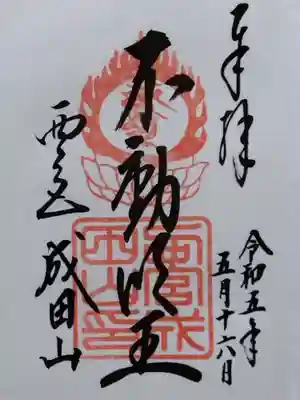 奉拝
令和五年
五月十六日
不動明王
西之宮 成田山